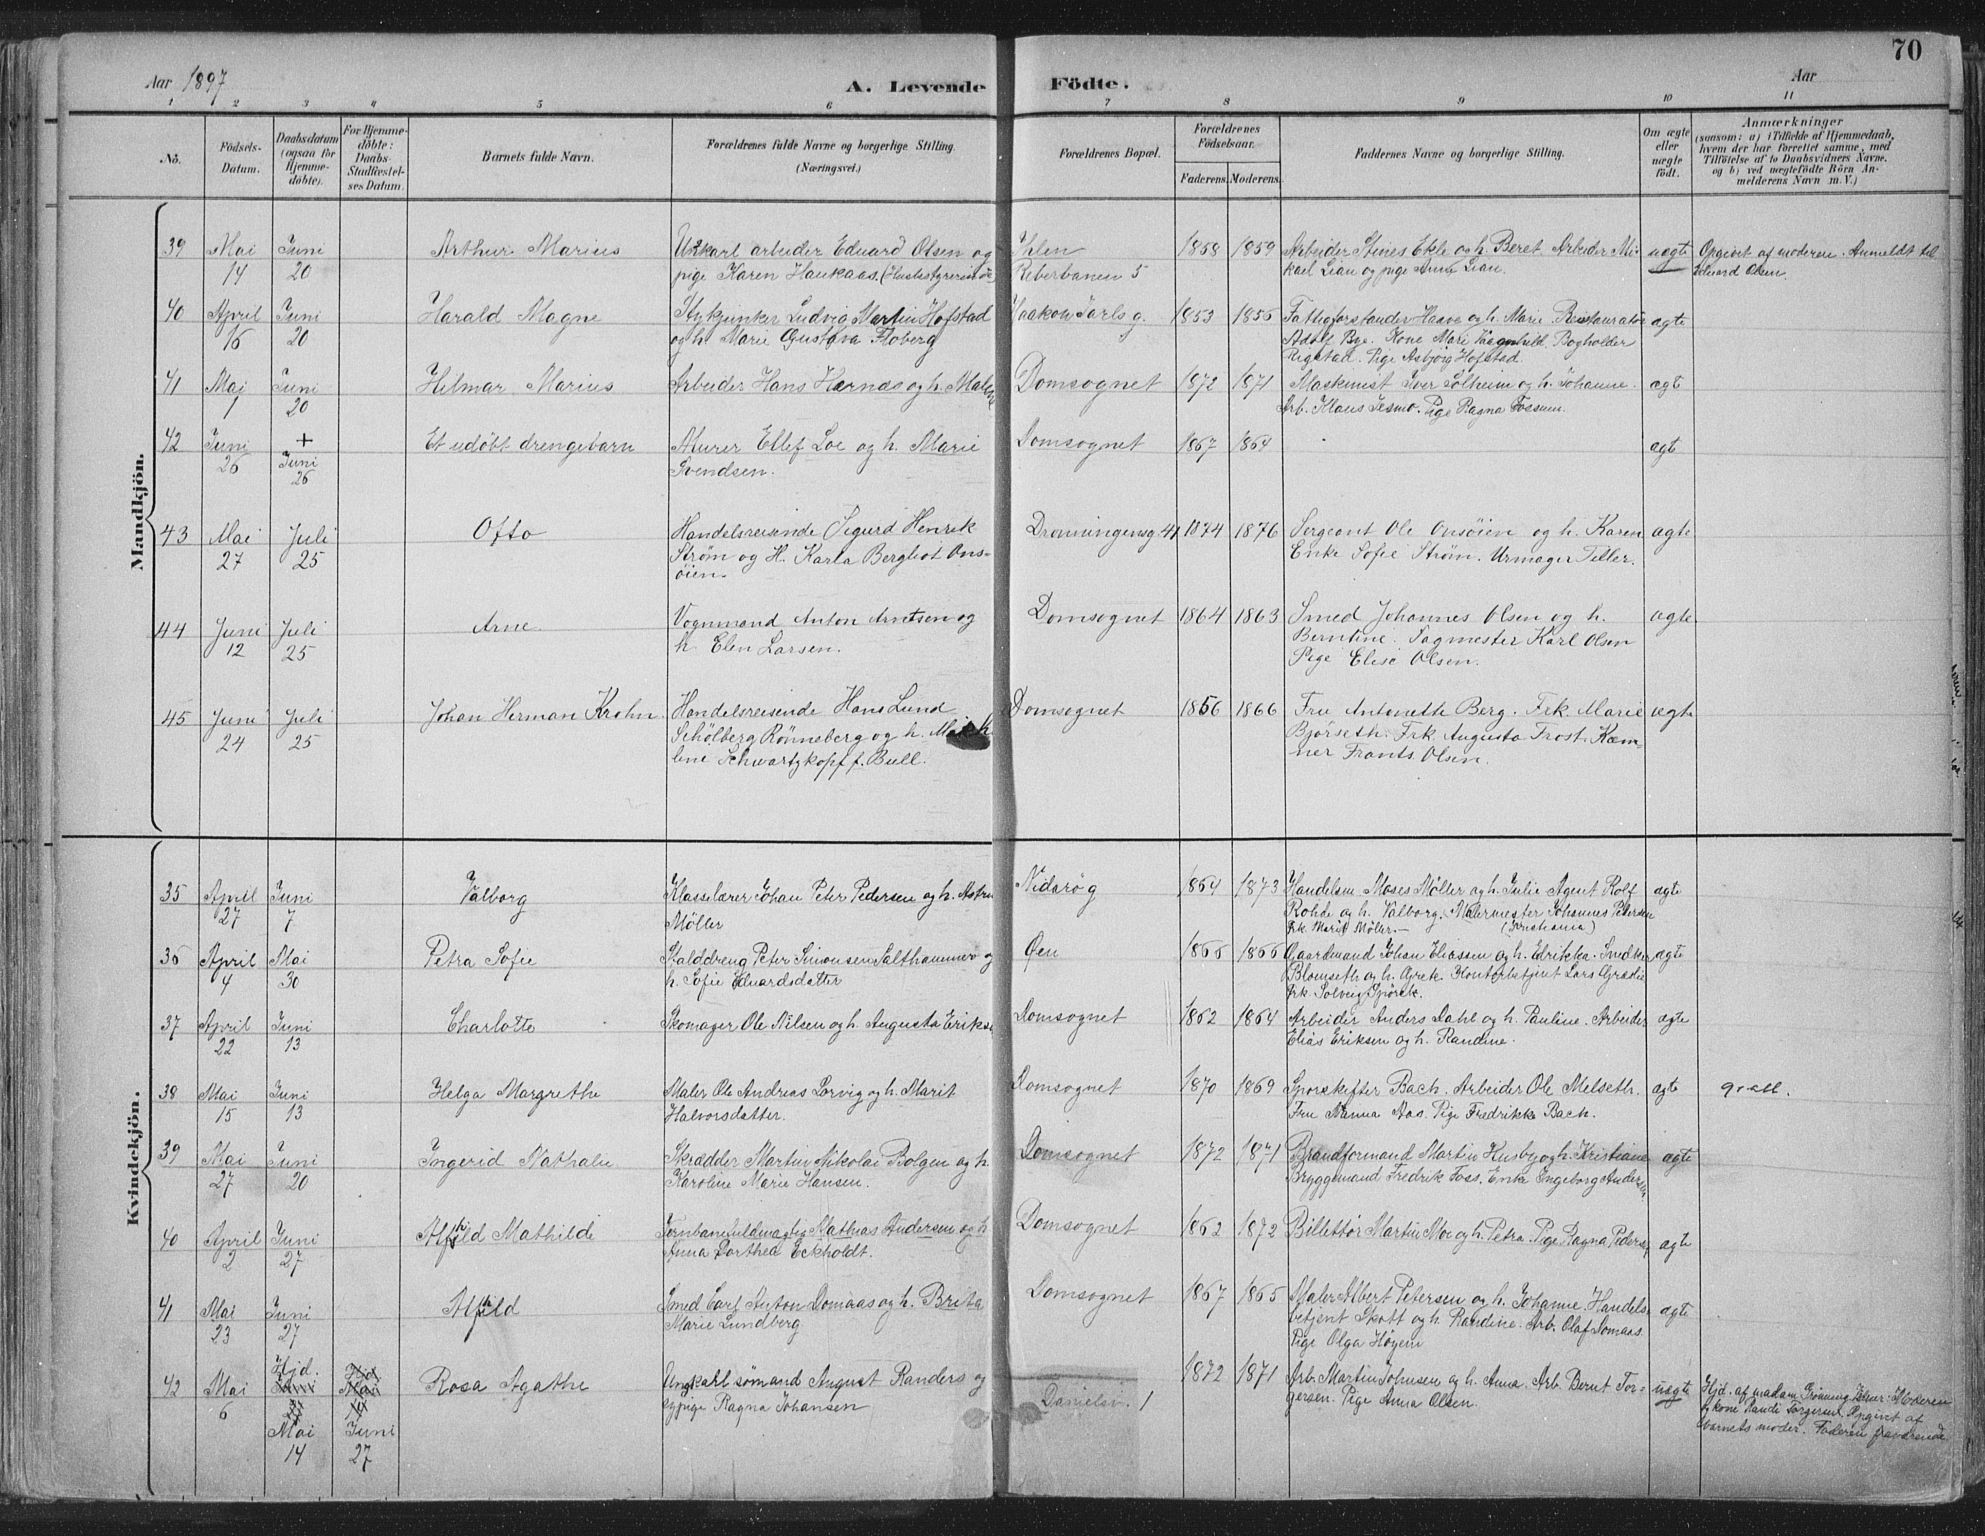 70
Aar 1897
A. Levende Födte.
Aar
1 2 3 4 5 6 7 8 9 10 11
No.
Födsels-
Datum.
Daabsdatum
(ogsaa for
Hjemme-
döbte).
For Hjemme-
döbte:
Daabs-
Stadfæstel-
ses Datum.
Barnets fulde Navn.
Forældrenes fulde Navne og borgerlige Stilling.
(Næringsvei.)
Forældrenes Bopæl.
Forældrenes
Födselsaar.
Faderens. Moderens.
Faddernes Navne og borgerlige Stilling.
Om ægte
eller
uægte
födt.
Anmærkninger
(saasom: a) i Tilfælde af Hjemmedaab,
hvem der har forrettet samme, med
Tilföielse af to Daabsvidners Navne,
og b) ved uægtefödte Börn An-
melderens Navn m. V.)
Mandkjön.
39 Mai Juni Arthur Marius Ungkarl arbeider Eduard Olsen og Ihlen 1858 1859 Arbeider Stines Ekle og h. Beret. Arbeider Mi- uægte Opgivet af moderen. Anmeldt til
14 20 pige Karen Haukaas. Reberbanen 5 kael Lian og pige Anne Lian. Eduard Olsen.
40 April Juni Harald Magne Ludvig Martin Hofstad Haakon Jarls g. 1853 1856 Fattigforstander Haave og h. Marie. Restauratør ægte
16 20 og h. Marie Gustava Floberg Adolf Bye. Kone Mari Vaagnhild. Bogholder
Rigstad. Pige Asbjørg Hofstad.
41 Mai Juni Hilmar Marius Arbeider Hans Hærnæs og h. Malene Domsognet 1872 1871 Maskinist Iver Solheim og h. Johanne. ægt
1 20 Arb. Klaus Jesmo. Pige Ragna Fossum.
42 Juni + Et udøbt drengebarn Murer Ellef Loe og h. Marie Domsognet 1867 1864 ægt
26 Juni Svendsen.
26
43 Mai Juli Otto Handelsreisende Sigurd Henrik Dronningensg. 41 1874 1876 Sergeant Ole Onsøien og h. Karen ægte
27 25 Strøm og H. Karla Bergliot Ons- Enke Sofie Strøm. Urmager Teller.
øien.
44 Juni Juli Arne Vognmand Anton Arntsen og Domsognet 1864 1863 Smed Johannes Olsen og h. ægte
12 25 h. Elen Larsen. Berntine. Sagmester Karl Olsen
Pige Elise Olsen.
45 Juni Juli Johan Herman Krohn Handelsreisende Hans Lund Domsognet 1856 1866 Fru Antoneth Berg. Frk. Marie ægte
24 25 Schölberg Rönneberg og h. Bjørseth. Frk. Augusta Frost. Kæm-
lene Schwartzkopf f. Bull. ner Frants Olsen.
Kvindekjön.
35 April Juni Valborg Klasselærer Johan Peter Pedersen og h. Astri Nidarø g 1864 1873 Handelsm. Moses Møller og h. Julie Agent Rolf ægte
27 7 Møller Rohde og h. Valborg. Malermester Johannes Petersen
Frk. Marie Møller. (Kristiania)
36 April Mai Petra Sofie Stalddreng Peter Simonsen Salthammer og Øen 1866 1866 Gaardmand Johan Eliassen og h. Edrikka. Snedker ægte
4 30 h. Sofie Eduardsdatter Blomseth og h. Grete. Kontorbetjent Lars Græslie
Frk. Solveig Sjörek.
37 April Juni Charlotte Skomager Ole Nilsen og h. Augusta Eriks Domsognet 1862 1864 Arbeider Anders Dahl og h. Pauline. Arbeider ægte
22 13 Elias Eriksen og h. Randine.
38 Mai Juni Helga Margrethe Maler Ole Andreas Lorvig og h. Marit Domsognet 1870 1869 Sporskifter Bach. Arbeider Ole Melseth. ægt
15 13 Halvorsdatter. Fru Nanna Aas. Pige Fredrikke Bach.
39 Mai Juni Ingerid Nathalie Skrædder Martin Nikolai Bolgen og h. Domsognet 1872 1871 Brandformand Martin Husby og h. Kristiane ægte
27 20 Karoline Marie Hansen. Bryggemand Fredrik Foss. Enke Engeborg Andersen
40 April Juni Alfhild Mathilde Mathias Andersen og h Domsognet 1862 1872 Billettør Martin Moe og h. Petra. Pige Ragna Peders ægte
2 27 Anna Dorthea Eckholdt.
41 Mai Juni Alfhild Smed Carl Anton Domaas og h. Brita Domsognet 1867 1865 Maler Albert Petersen og h. Johanne Handels- ægte
23 27 Marie Lundberg betjent Skott og h. Randine. Arb. Olaf Domaas.
Pige Olga Høyem
42 Mai Hjd. Rosa Agathe Ungkarl sømand August Randers og Danielsv. 1 1872 1871 Arb. Martin Johnsen og h. Anna. Arb. Bernt Tor- uægte Hjd. af madam Grönning
6 Mai 14 Juni 27 pige Ragna Johansen gersen. Pige Anna Olsen. kone Randi Torgersen. Opgivet af
barnets moder. Faderen fraværende